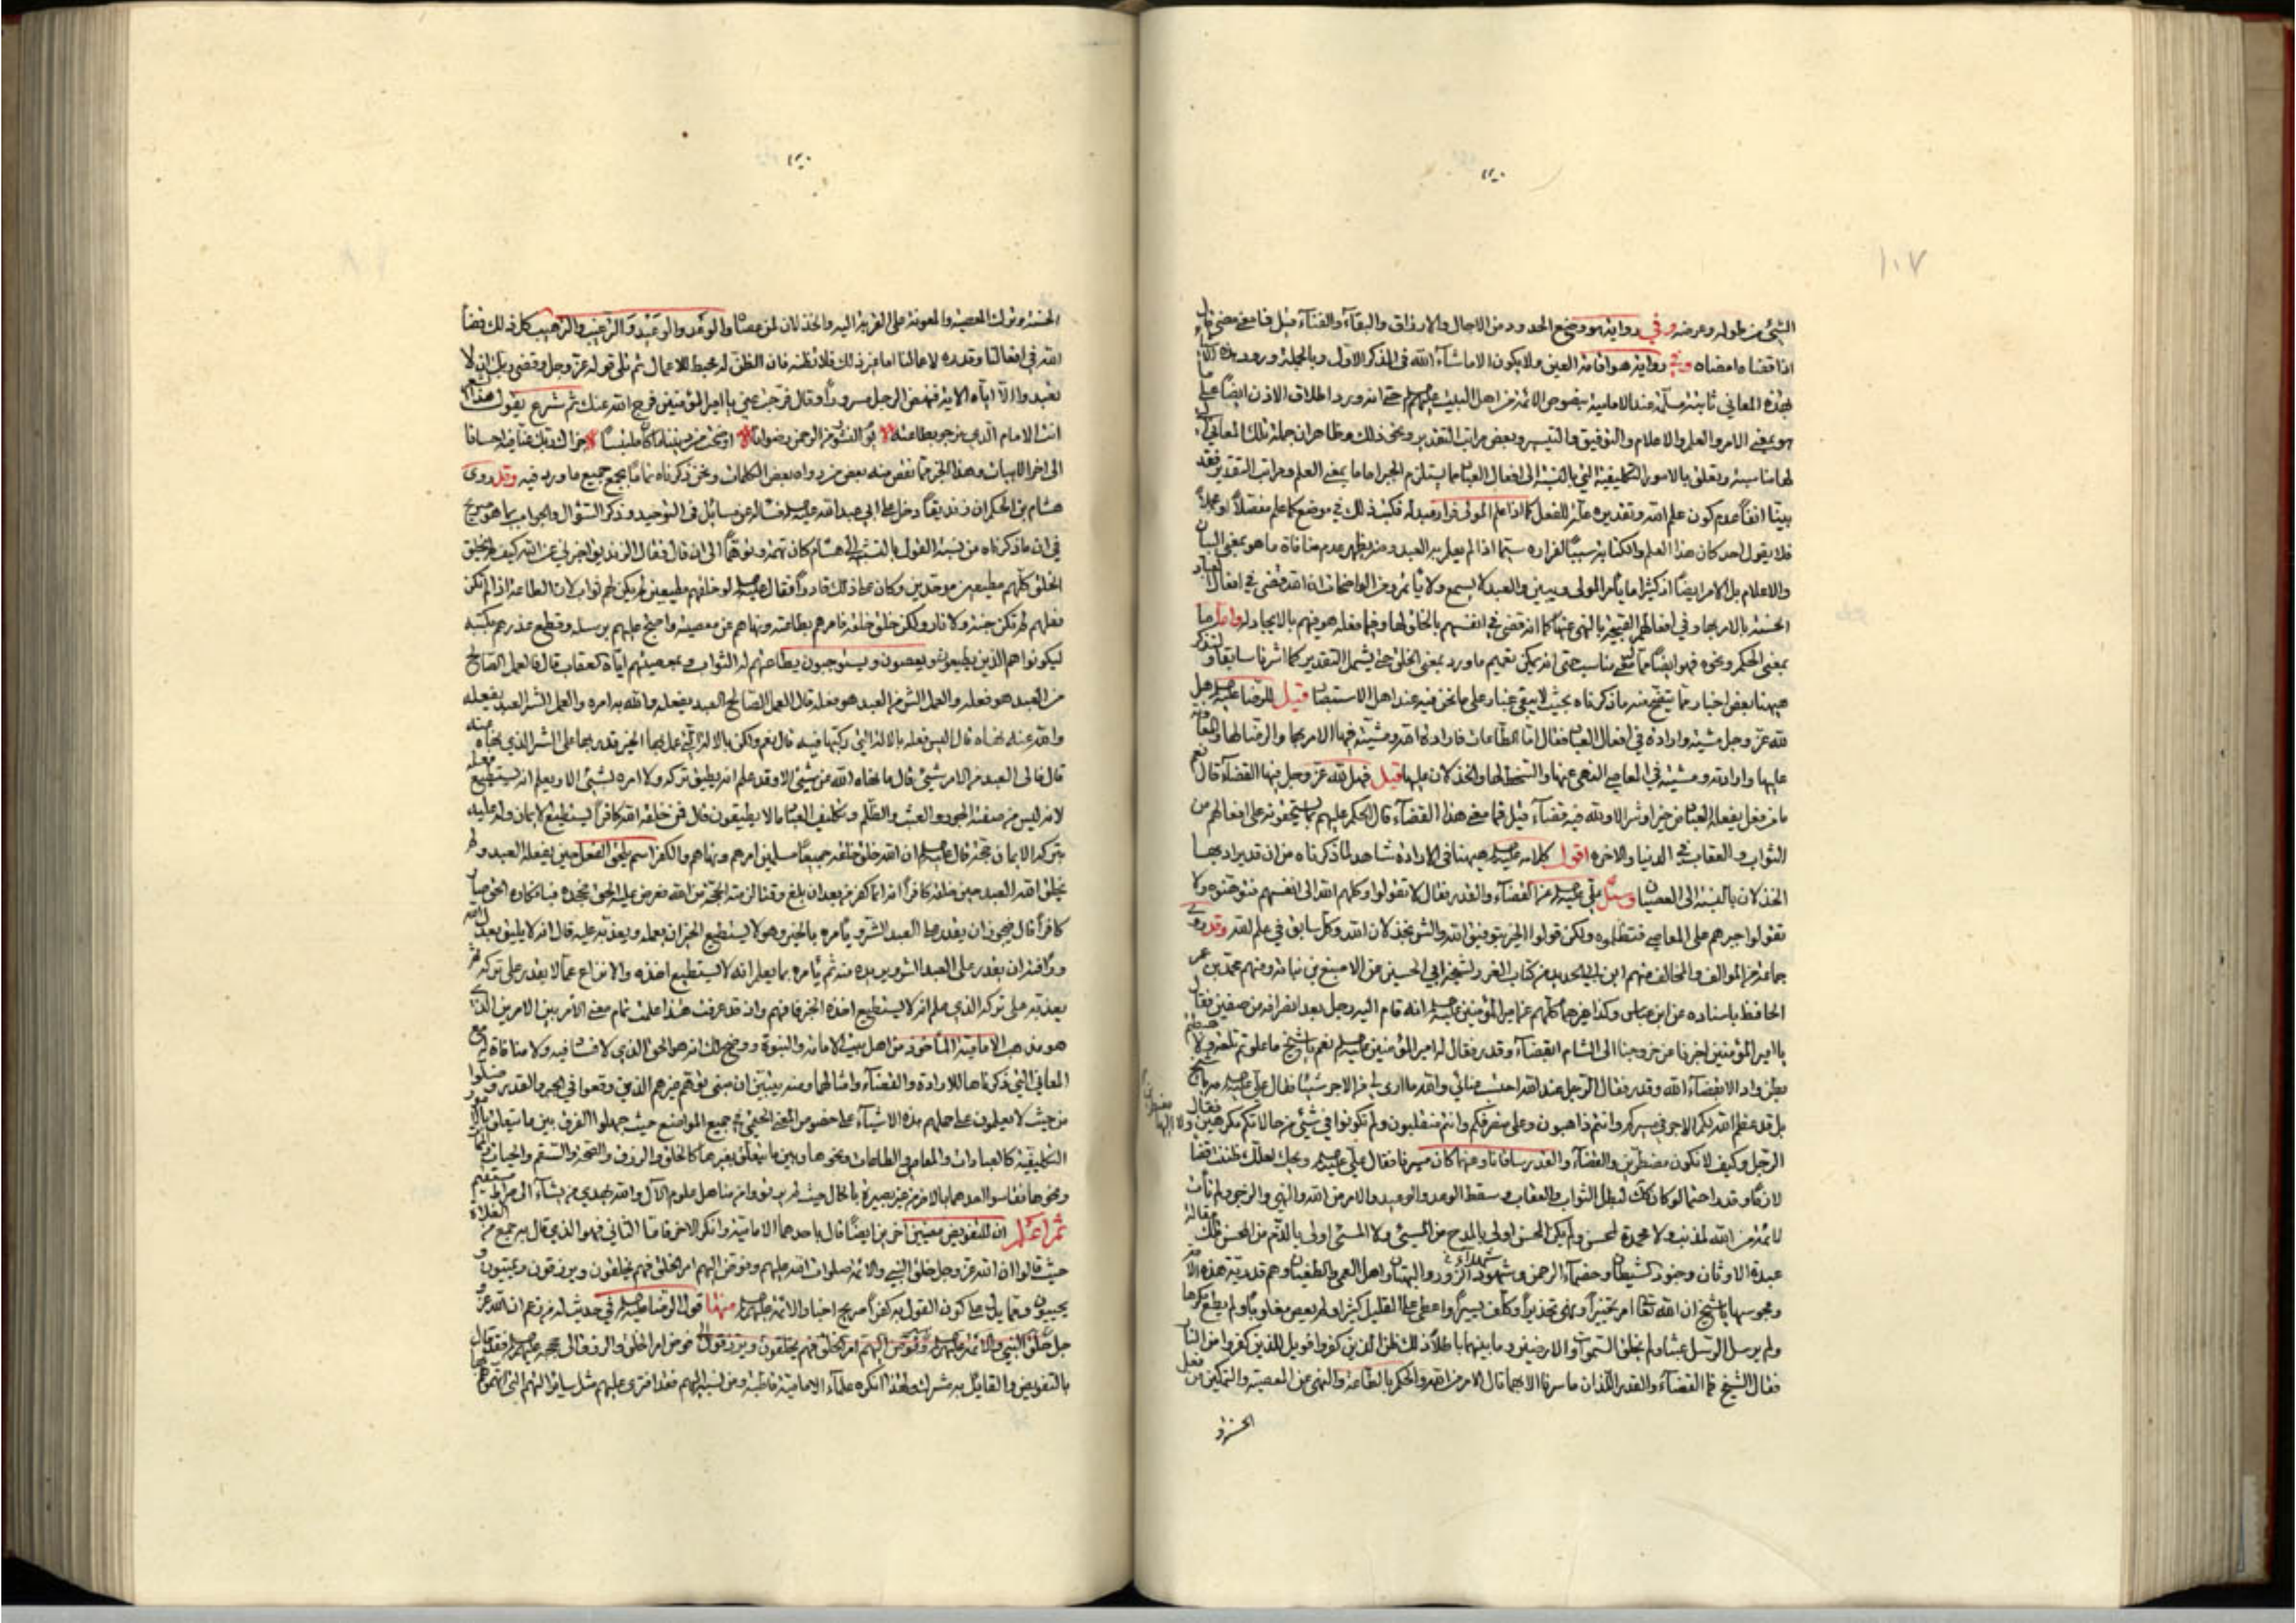 ١٠٧
الشئ من طوله وعرضه وفي رواية هو وضع الحدود من الاجال والارزاق والبقآء والفنآء قيل فما معنى قضى قال
اذا قضاه امضاه وفي رواية هو اقامة العين ولا يكون الا ماشآء الله في الذكر الاول وبالجملة ورود
بهذه المعاني ثابتة مسلمة عند الامامية بنصوص الائمة من اهل البيت عليهم حتى انه ورد اطلاق الاذن ايضا على
هو بمعنى الامر والعلم والاعلام والتوفيق والتيسير وبعض مراتب التقدير ونحو ذلك وظاهر ان جملة تلك المعاني
لها مناسبة وتعلق بالامور التكليفية التي بالنسبة الى افعال العباد مما يستلزم الجبر اما ما بمعنى العلم ومراتب التقدير فقد
بينا انفا عدم كون علم الله وتقديره علة للفعل كما اذا علم المولى فرار عبده فكتب ذلك في موضع كما علم مفصلا او مجملا
فلا يقول احد كان هذا العلم والكتابة سببا لفراره سيما اذا لم يعلم به العبد ومنه يظهر عدم منافاة ما هو بمعنى البيان
والاعلام بل الامر ايضا اذ كثيرا ما يأمر المولى ويبين والعبد لا يسمع ولا يأتمر ومن الواضحات ان الله قضى في افعال العباد
الحسنة بالامر بها وفي افعالهم القبيحة بالنهي عنها كما انه قضى في انفسهم بالخلق لها وفيما فعله هو فيهم بالايجاد له واما ما
بمعنى الحكم ونحوه فهو ايضا مناسب حتى انه يمكن تعميم ما ورد بمعنى الخلق حتى يشمل التقدير كما اشرنا سابقا ولنذكر
هيهنا بعض اخبار مما يتضح منه ما ذكرناه بحيث لا يبقى غبار على ما نحن فيه عند اهل الاستبصار قيل للرضا عليه السلام هل
لله عز وجل مشية وارادة في افعال العباد فقال اما الطاعات فارادة الله ومشيته فيها الامر بها والرضا لها والمعاونة
عليها وارادته ومشيته في المعاصي النهي عنها والسخط لها والخذلان عليها قيل فهل لله عز وجل فيها القضآء قال نعم
ما من فعل يفعله العباد من خير او شر الا ولله فيه قضآء قيل فما معنى هذا القضآء قال الحكم عليهم بما يستحقونه على افعالهم من
الثواب والعقاب في الدنيا والاخره اقول كلامه عليه السلام هيهنا في الارادة شاهد لما ذكرناه من ان قد يراد بها
الخذلان بالنسبة الى العصيان وسئل علي عليه السلام عن القضآء والقدر فقال لا تقولوا وكلهم الله الى انفسهم فتوهنوه ولا
تقولوا جبرهم على المعاصي فتظلموه ولكن قولوا الخير بتوفيق الله والشر بخذلان الله وكل سابق في علم الله وقد روى
جماعة من الموالف والمخالف منهم ابن ابي الحديد من كتاب الغرر لشيخه ابي الحسين عن الاصبغ بن نباتة ومنهم محمد بن عمر
الحافظ باسناده عن ابن عباس وكذا غيرهما كلهم عن امير المؤمنين عليه السلام انه قام اليه رجل بعد انصرافه من صفين فقال
يا امير المؤمنين اخبرنا عن خروجنا الى الشام ابقضآء وقدر فقال له امير المؤمنين عليه السلام نعم يا شيخ ما علوتم تلعة ولا هبطتم
بطن واد الا بقضآء الله وقدر فقال الرجل عند الله احتسب عنائي والله ما ارى لي من الاجر شيئا فقال علي عليه السلام مه يا شيخ
بل قد عظم الله لكم الاجر في مسيركم وانتم ذاهبون وعلى منصرفكم وانتم منقلبون ولم تكونوا في شئ من حالاتكم مكرهين ولا اليها مضطرين فقال
الرجل وكيف لا نكون مضطرين والقضآء والقدر ساقانا وعنهما كان مسيرنا فقال علي عليه السلام ويحك لعلك ظننت قضا
لازما وقدرا حتما لو كان ذلك لبطل الثواب والعقاب وسقط الوعد والوعيد والامر من الله والنهي والزجر ولم تأت
لائمة من الله لمذنب ولا محمدة لمحسن ولم يكن المحسن اولى بالمدح من المسيئ ولا المسئ اولى بالذم من المحسن تلك مقالة
عبدة الاوثان وجنود الشيطان وخصمآء الرحمن وشهدآء الزور والبهتان واهل العمى والطغيان وهم قدرية هذه الامة
ومجوسها يا شيخ ان الله تعالى امر تخييرا ونهى تحذيرا وكلف يسيرا واعطى على القليل كثيرا ولم يعص مغلوبا ولم يطع مكرها
ولم يرسل الرسل عبثا ولم يخلق السموات والارضين وما بينهما باطلا ذلك ظن الذين كفروا فويل للذين كفروا من النار
فقال الشيخ فما القضآء والقدر اللذان ما سرنا الا بهما قال الامر من الله والحكم بالطاعة والنهي عن المعصية والتمكين من فعل
الحسنة و
الحسنة وترك المعصية والمعونة على القربة اليه والخذلان لمن عصاه والوعد والوعيد والترغيب والترهيب كل ذلك قضآء
الله في افعالنا وقدره لاعمالنا اما غير ذلك فلا تظنه فان الظن له محبط للاعمال ثم تلى قوله عز وجل وقضى ربك ان لا
تعبدوا الا اياه الاية فنهض الرجل مسرورا وقال فرجت عني يا امير المؤمنين فرج الله عنك ثم شرع يقول شعر
انت الامام الذي نرجو بطاعته يوم النشور من الرحمن رضوانا اوضحت من ديننا ما كان ملتبسا جزاك ربك عنا فيه احسانا
الى اخر الابيات وهذا الخبر مما نقص منه بعض من رواه بعض الكلمات ونحن ذكرناه تماما بجمع جميع ما ورد فيه وقد روى
هشام بن الحكم ان زنديقا دخل على ابي عبد الله عليه السلام فسأله عن مسائل في التوحيد وذكر السؤال والجواب بما هو صريح
في ان ما ذكرناه من نسبة القول بالتشبيه الى هشام كان تهمة وتوهما الى ان قال فقال الزنديق اخبرني عن الله كيف لم يخلق
الخلق كلهم مطيعين موحدين وكان على ذلك قادرا فقال عليه السلام لو خلقهم مطيعين لم يكن لهم ثواب لان الطاعة اذا لم تكن
فعلهم لم تكن جنة ولا نار ولكن خلق خلقه فامرهم بطاعته ونهاهم عن معصيته واحتج عليهم برسله وقطع عذرهم بكتبه
ليكونوا هم الذين يطيعون ويعصون ويستوجبون بطاعتهم له الثواب وبمعصيتهم اياه العقاب قال فالعمل الصالح
من العبد هو فعله والعمل الشر من العبد هو فعله قال العمل الصالح العبد يفعله والله به امره والعمل الشر العبد يفعله
والله عنه نهاه قال اليس فعله بالالة التي ركبها فيه قال نعم ولكن بالالة التي عمل بها الخير قدر بها على الشر الذي نهاه عنه
قال فالى العبد من الامر شئ قال ما نهاه الله عن شئ الا وقد علم انه يطيق تركه ولا امره بشئ الا ويعلم انه يستطيع فعله
لانه ليس من صفته الجور والعبث والظلم وتكليف العباد ما لا يطيقون قال فمن خلقه الله كافرا يستطيع الايمان وله عليه
بتركه الايمان حجة قال عليه السلام ان الله خلق خلقه جميعا مسلمين امرهم ونهاهم والكفر اسم يلحق الفعل حين يفعله العبد ولم
يخلق الله العبد حين خلقه كافرا انه انما كفر من بعد ان بلغ وقتا لزمته الحجة من الله فعرض عليه الحق فجحده فبانكاره الحق صار
كافرا قال فيجوز ان يقدر على العبد الشر ويأمره بالخير وهو لا يستطيع الخير ان يعمله ويعذبه عليه قال انه لا يليق بعدل الله
ورأفته ان يقدر على العبد الشر ويريده منه ثم يأمره بما يعلم انه لا يستطيع اخذه والانزاع عما لا يقدر على تركه ثم
يعذبه على تركه الذي علم انه لا يستطيع اخذه الخبر فافهم واذ قد عرفت هذا علمت تمام معنى الامر بين الامرين الذي
هو مذهب الامامية المأخوذ من اهل بيت الامامة والنبوة ووضح لك انه هو الحق الذي لا فساد فيه ولا منافاة له مع
المعاني التي ذكرناها للارادة والقضآء وامثالها ومنه يتبين ان مبنى توهم غيرهم الذين وقعوا في الجبر والقدر وضلوا
من حيث لا يعلمون على حملهم هذه الاشيآء على خصوص المعنى الحقيقي في جميع المواضع حيث جهلوا الفرق بين ما يتعلق بالامور
التكليفية كالعبادات والمعاصي والطاعات ونحوها وبين ما يتعلق بغيرها كالخلق والرزق والصحة والسقم والحيات والممات
ونحوها فقاسوا احدهما بالاخر من غير بصيرة بالحال حيث لم يعرفوا من مناهل علوم الآل والله يهدي من يشآء الى صراط مستقيم
ثم اعلم ان للتفويض معنيين اخرين ايضا قال باحدهما الامامية وانكر الاخر فاما الثاني فهو الذي قال به جمع من الغلاة
حيث قالوا ان الله عز وجل خلق النبي والائمة صلوات الله عليهم وفوض اليهم امر الخلق فهم يخلقون ويرزقون ويميتون و
يحييون ومما يدل على كون القول به كفرا صريح اخبار الائمة عليهم السلام منها قول الرضا عليه السلام في حديث له من زعم ان الله عز و
جل خلق النبي والائمة عليهم السلام وفوض اليهم امر الخلق فهم يخلقون ويرزقون فوض امر الخلق والرزق الى حججه عليهم السلام فقد قال
بالتفويض والقائل به مشرك ولهذا انكره علمآء الامامية قاطبة ومن نسبه اليهم فقد افترى عليهم مثل سائر التهم التي